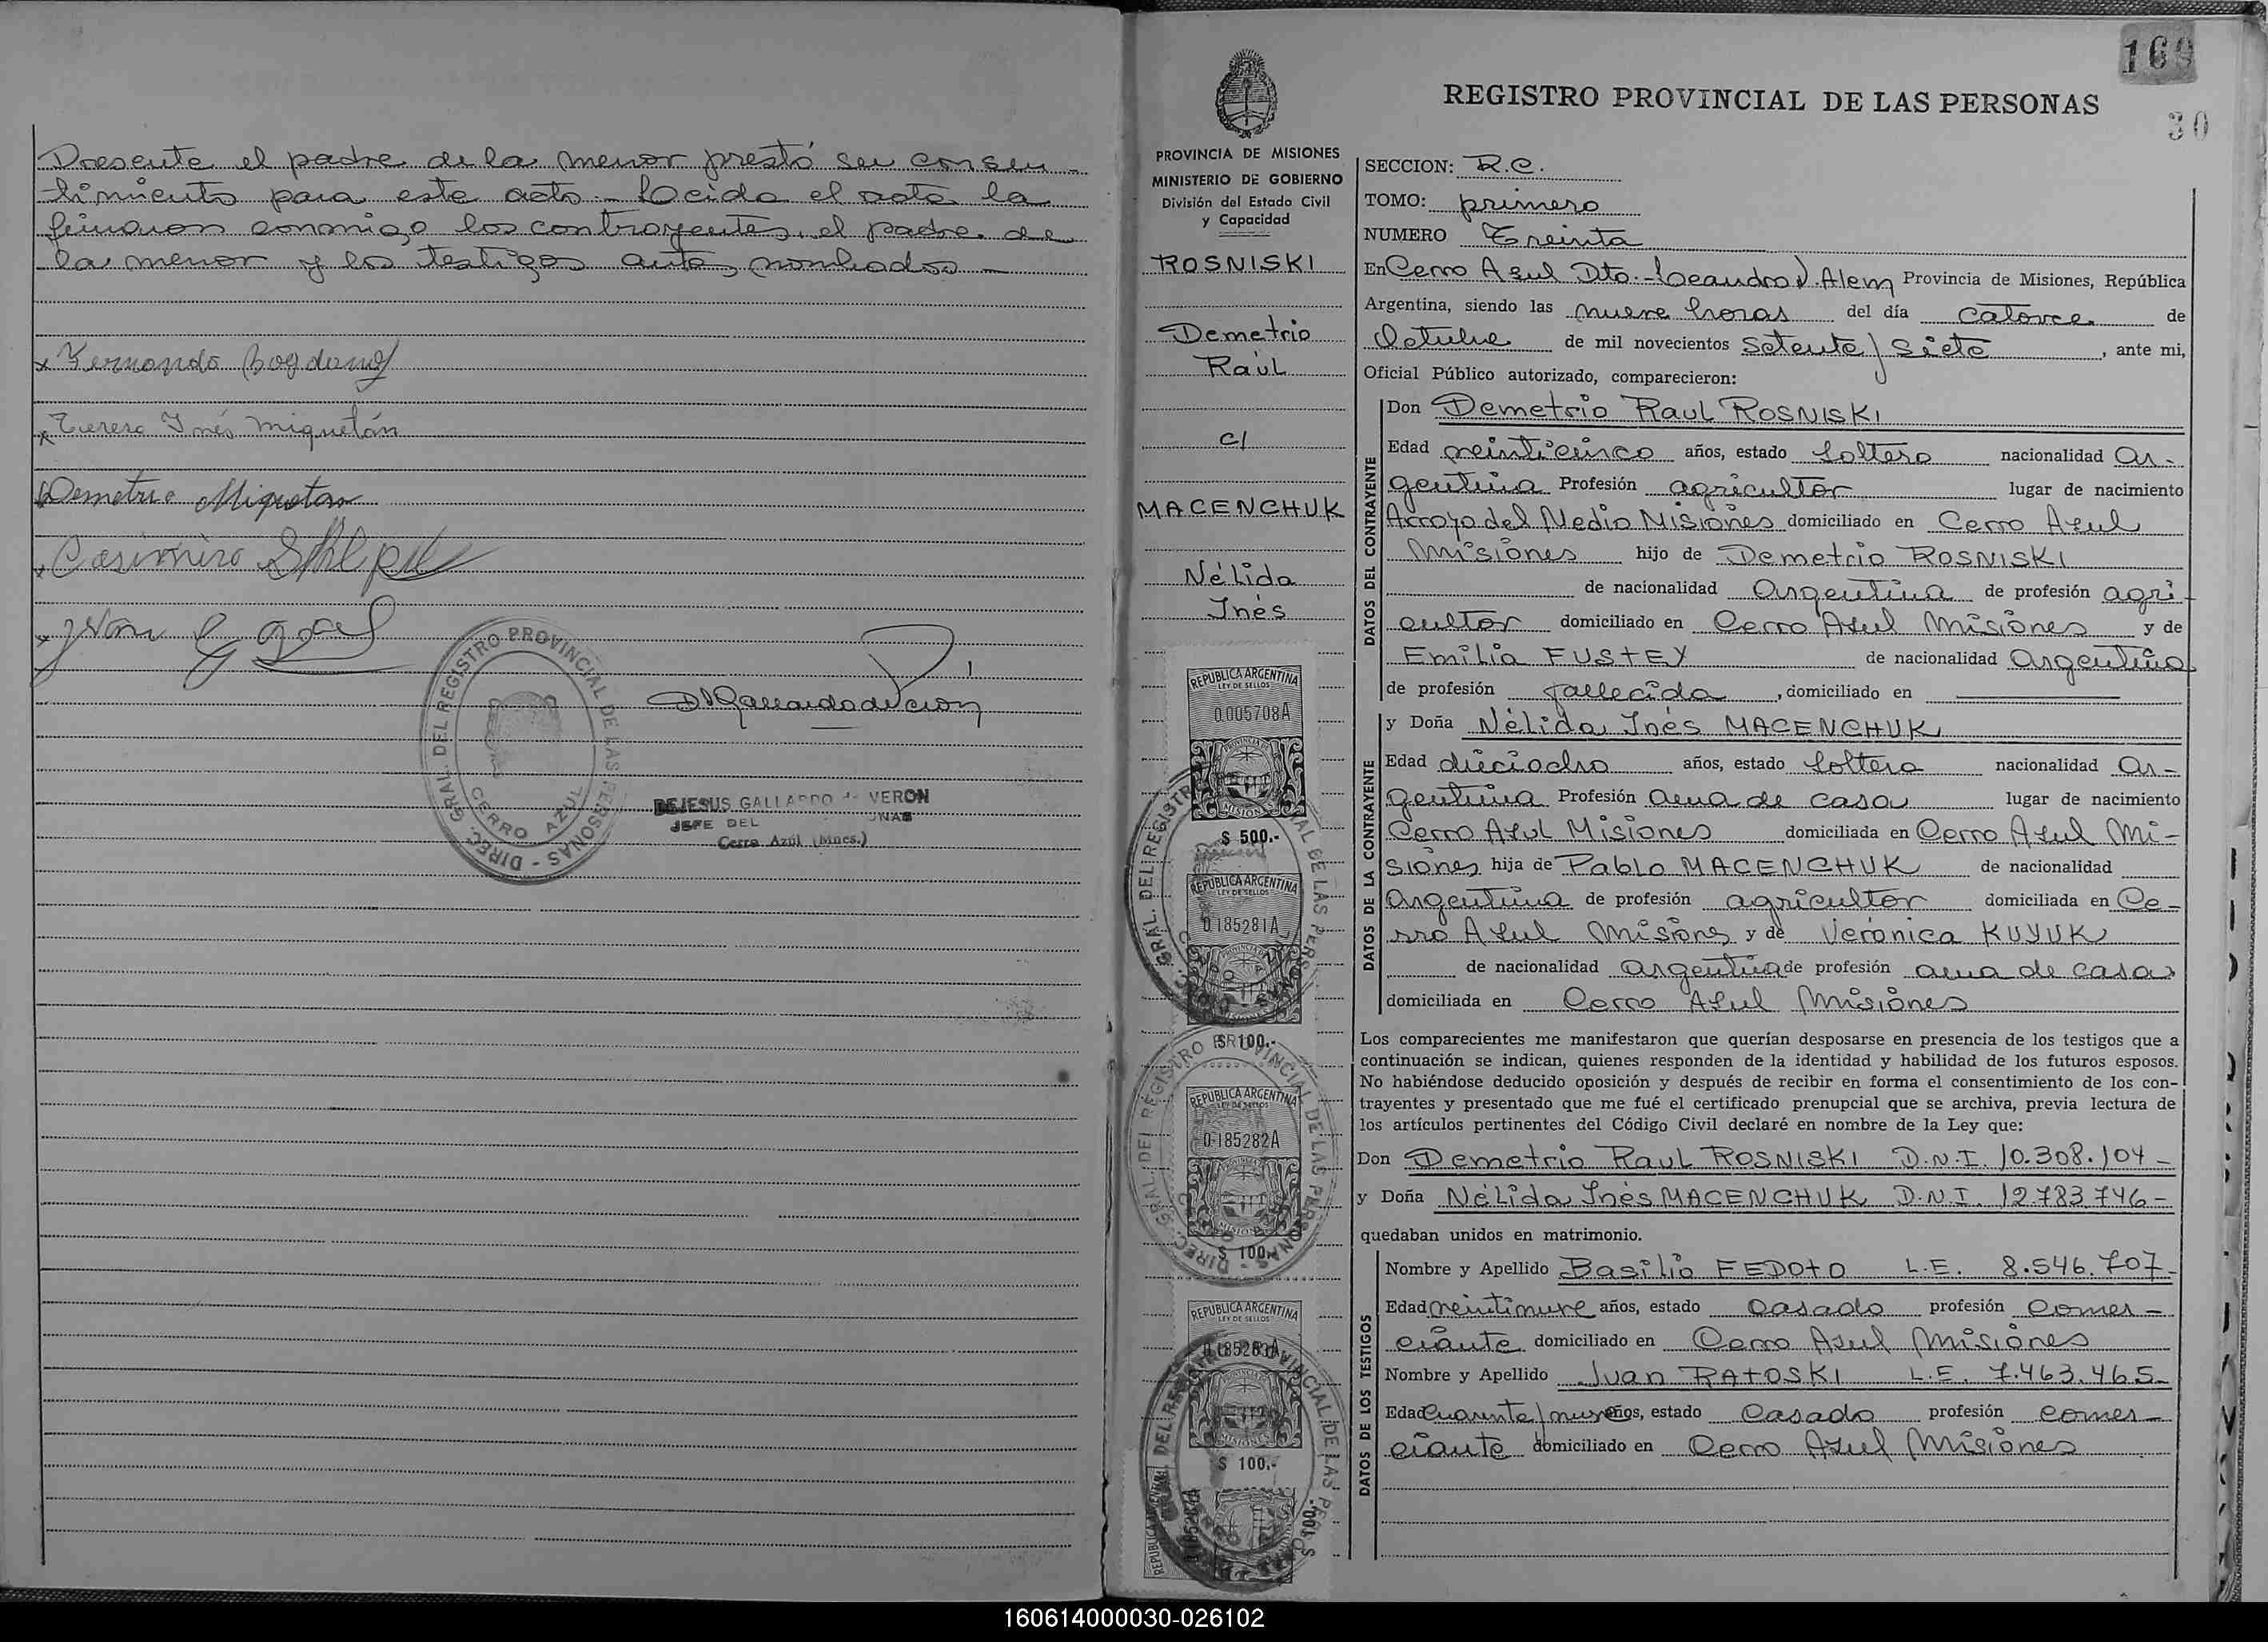 Presente el padre de la menor prestó su consen-
timiento para este acto.- Leida el acta la
firmaron conmigo los contrayentes, el padre de
la menor y los testigos antes nombrados -
x Fernando Bogdanof
x Teresa Inés Miquetán
x Demetrio Miquetan
x Casimiro
x
DIREC. GRAL. DEL REGISTRO PROVINCIAL DE LAS PERSONAS -
CERRO AZUL
DEJESUS GALLARDO de VERON
JEFE DEL
Cerro Azúl (Mnes.)
169
REGISTRO PROVINCIAL DE LAS PERSONAS
30
PROVINCIA DE MISIONES
MINISTERIO DE GOBIERNO
División del Estado Civil
y Capacidad
ROSNISKI
Demetrio
Raúl
c/
MACENCHUK
Nélida
Inés
REPUBLICA ARGENTINA
LEY DE SELLOS
0.005708A
MISIONES
$ 500.-
REPUBLICA ARGENTINA
LEY DE SELLOS
0.185281A
$ 100.-
REPUBLICA ARGENTINA
LEY DE SELLOS
0.185282A
MISIONES
$ 100.-
REPUBLICA ARGENTINA
LEY DE SELLOS
0.185283A
MISIONES
$ 100.-
$ 100.-
SECCION: R.C.
TOMO: primero
NUMERO Treinta
En Cerro Azul Dto.- Leandro N. Alem Provincia de Misiones, República
Argentina, siendo las nueve horas del día catorce de
Octubre de mil novecientos setenta y siete, ante mi,
Oficial Público autorizado, comparecieron:
DATOS DEL CONTRAYENTE
Don Demetrio Raul ROSNISKI
Edad veinticinco años, estado soltero nacionalidad Ar-
gentina Profesión agricultor lugar de nacimiento
Arroyo del Medio Misiones domiciliado en Cerro Azul
Misiones hijo de Demetrio ROSNISKI
de nacionalidad Argentina de profesión agri-
cultor domiciliado en Cerro Azul Misiones y de
Emilia FUSTEY de nacionalidad Argentina
de profesión fallecida, domiciliado en
DATOS DE LA CONTRAYENTE
y Doña Nélida Inés MACENCHUK
Edad dieciocho años, estado soltera nacionalidad Ar-
gentina Profesión ama de casa lugar de nacimiento
Cerro Azul Misiones domiciliada en Cerro Azul Mi-
siones hija de Pablo MACENCHUK de nacionalidad
Argentina de profesión agricultor domiciliada en Ce-
rro Azul Misiones y de Verónica KUYUK
de nacionalidad Argentina de profesión ama de casa
domiciliada en Cerro Azul Misiones
Los comparecientes me manifestaron que querían desposarse en presencia de los testigos que a
continuación se indican, quienes responden de la identidad y habilidad de los futuros esposos.
No habiéndose deducido oposición y después de recibir en forma el consentimiento de los con-
trayentes y presentado que me fué el certificado prenupcial que se archiva, previa lectura de
los artículos pertinentes del Código Civil declaré en nombre de la Ley que:
Don Demetrio Raul ROSNISKI D.N.I. 10.308.104 -
y Doña Nélida Inés MACENCHUK D.N.I. 12.783.746 -
quedaban unidos en matrimonio.
DATOS DE LOS TESTIGOS
Nombre y Apellido Basilio FEDOTO L.E. 8.546.707 -
Edad veintinuve años, estado Casado profesión Comer-
ciante domiciliado en Cerro Azul Misiones
Nombre y Apellido Juan RATOSKI L.E. 7.463.465 -
Edad Cuarenta y nueve años, estado Casado profesión comer-
ciante domiciliado en Cerro Azul Misiones
160614000030-026102